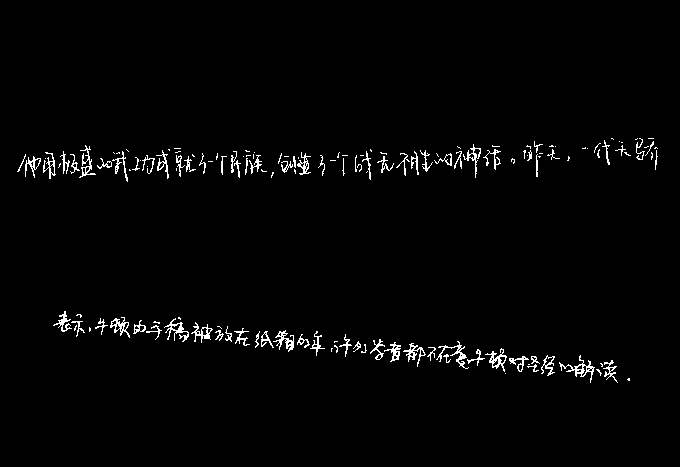 他用极盛的武功成就了一个民族,创造了一个战无不胜的神话。昨天,一代天骄
表示,牛顿的手稿被放在纸箱的年,许多学者都不在意牛顿对圣经的解读.